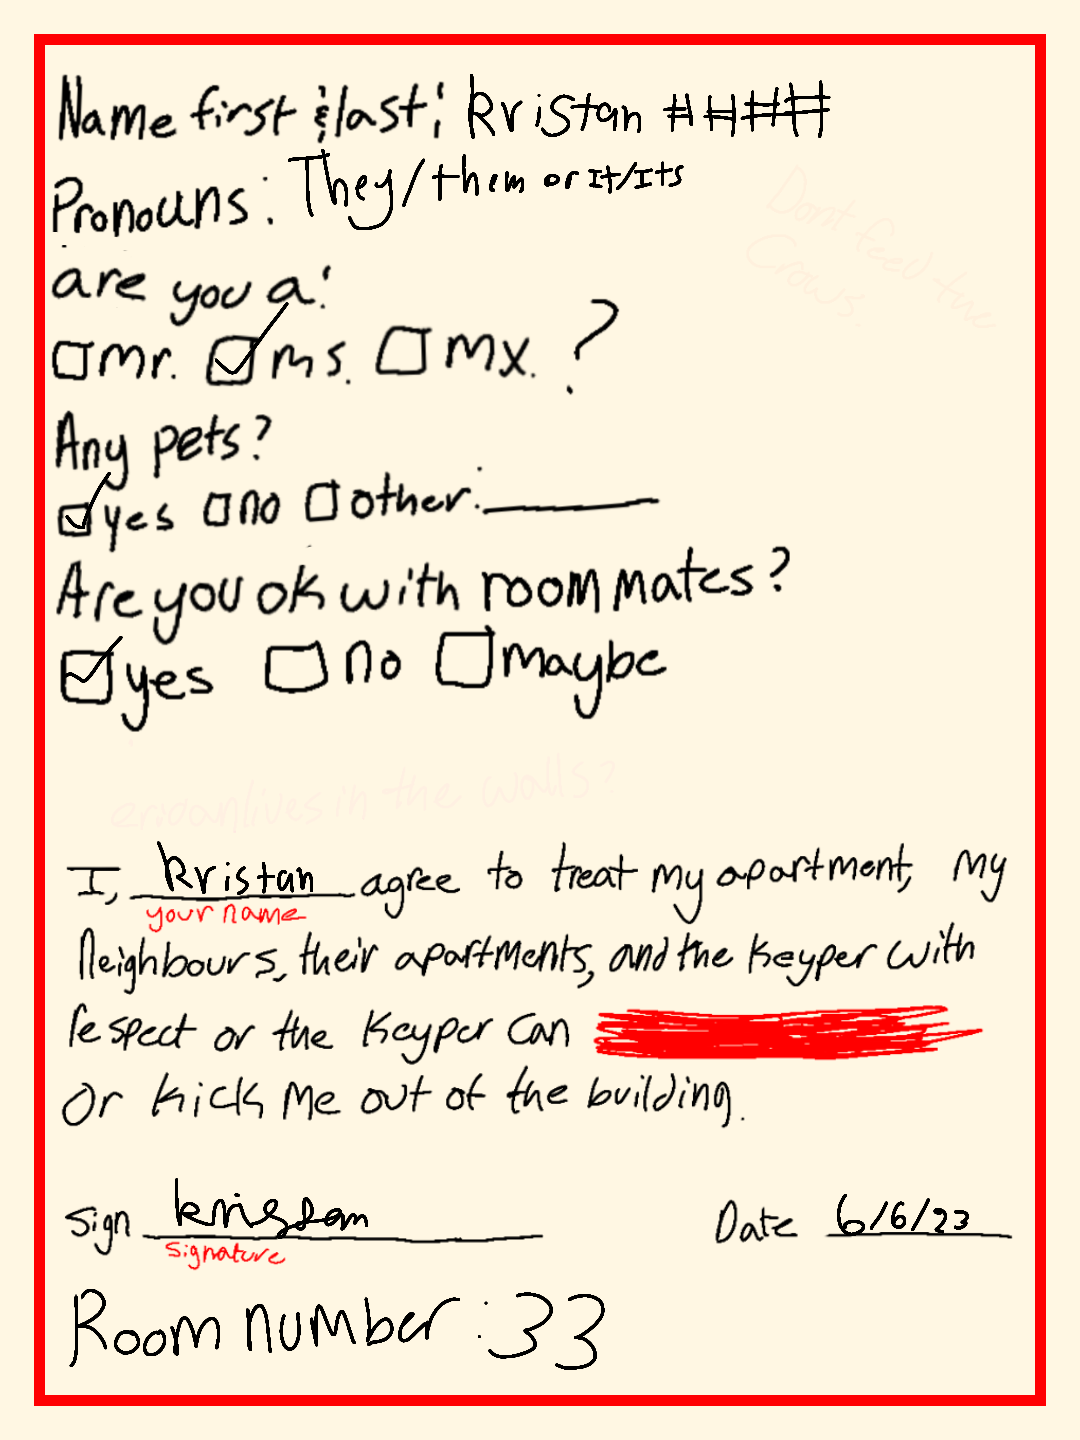 Name first & last: Kristan ####
Pronouns: They/them or It/Its
Dont feed the
Crows.
are you a:
mr. ms. mx. ?
Any pets?
yes no other:
Are you ok with roommates?
yes no maybe
lives in the walls?
I, Kristan agree to treat my apartment, my
your name
Neighbours, their apartments, and the Keyper with
respect or the Keyper can
Or kick me out of the building.
sign kristan Date 6/6/23
signature
Room number: 33